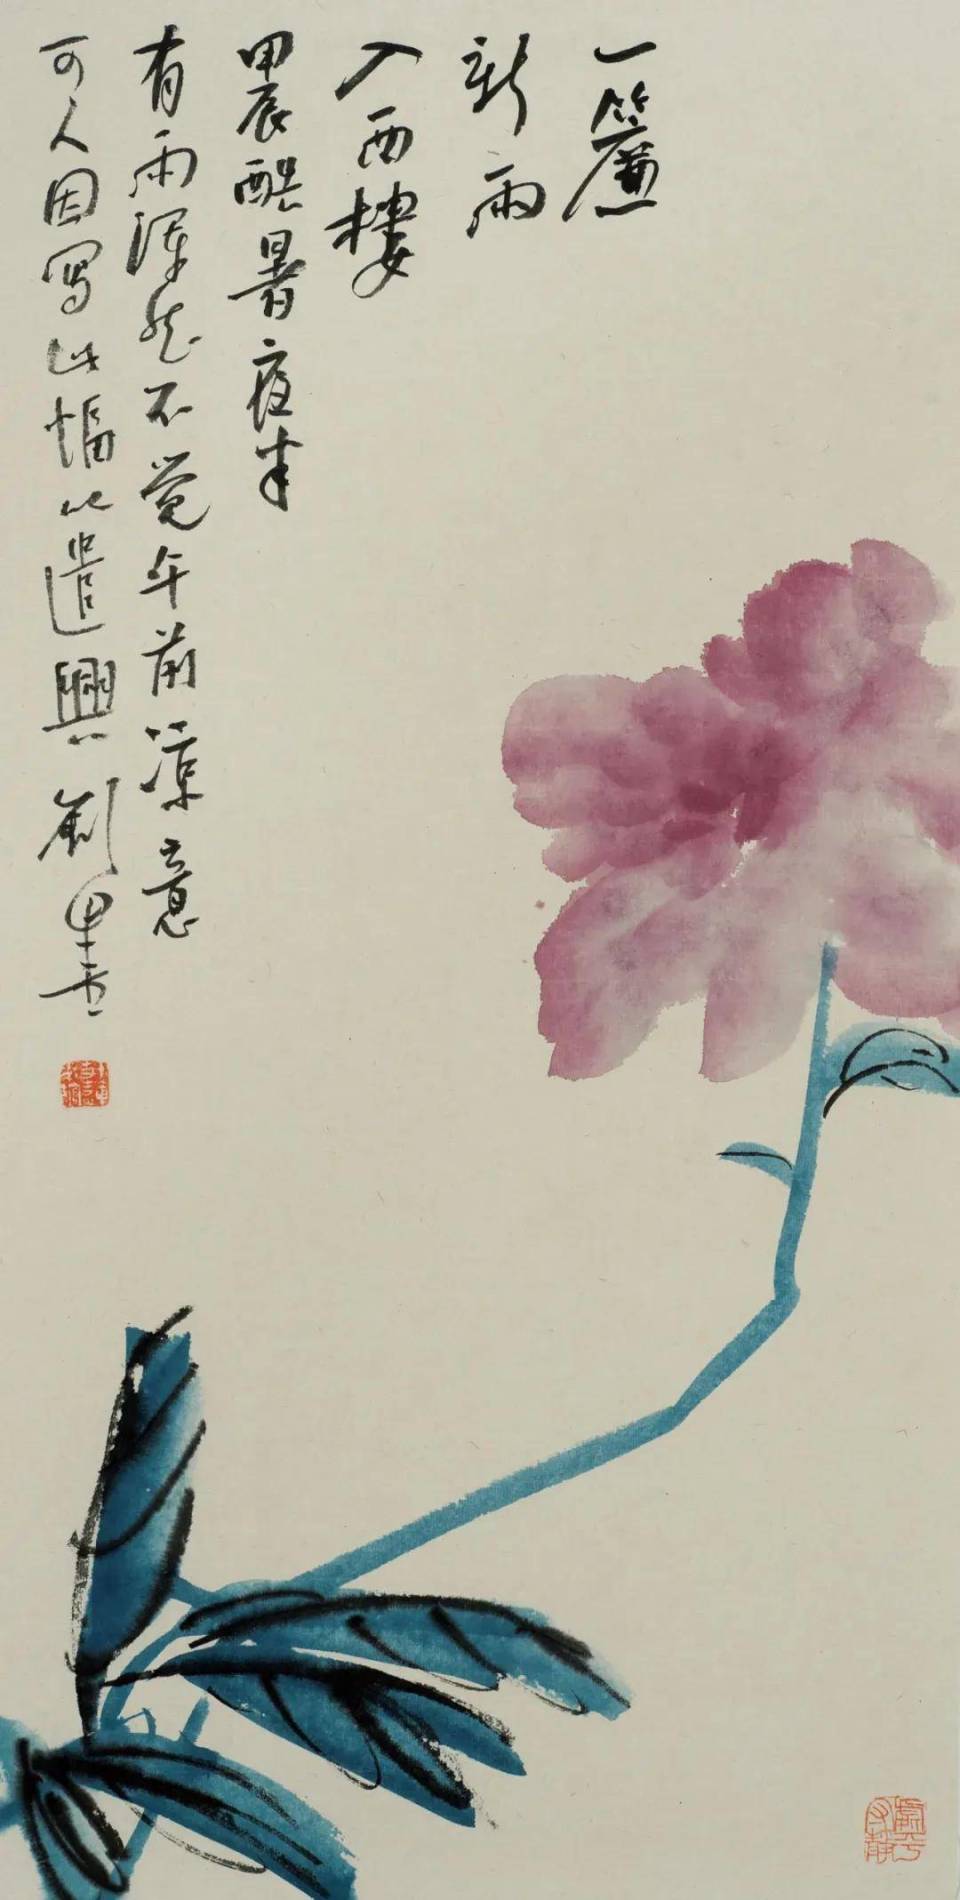 一簾
新雨
入西樓
甲辰酷暑夜半
有雨渾然不觉午前涼意
可人因写此幅以遣興